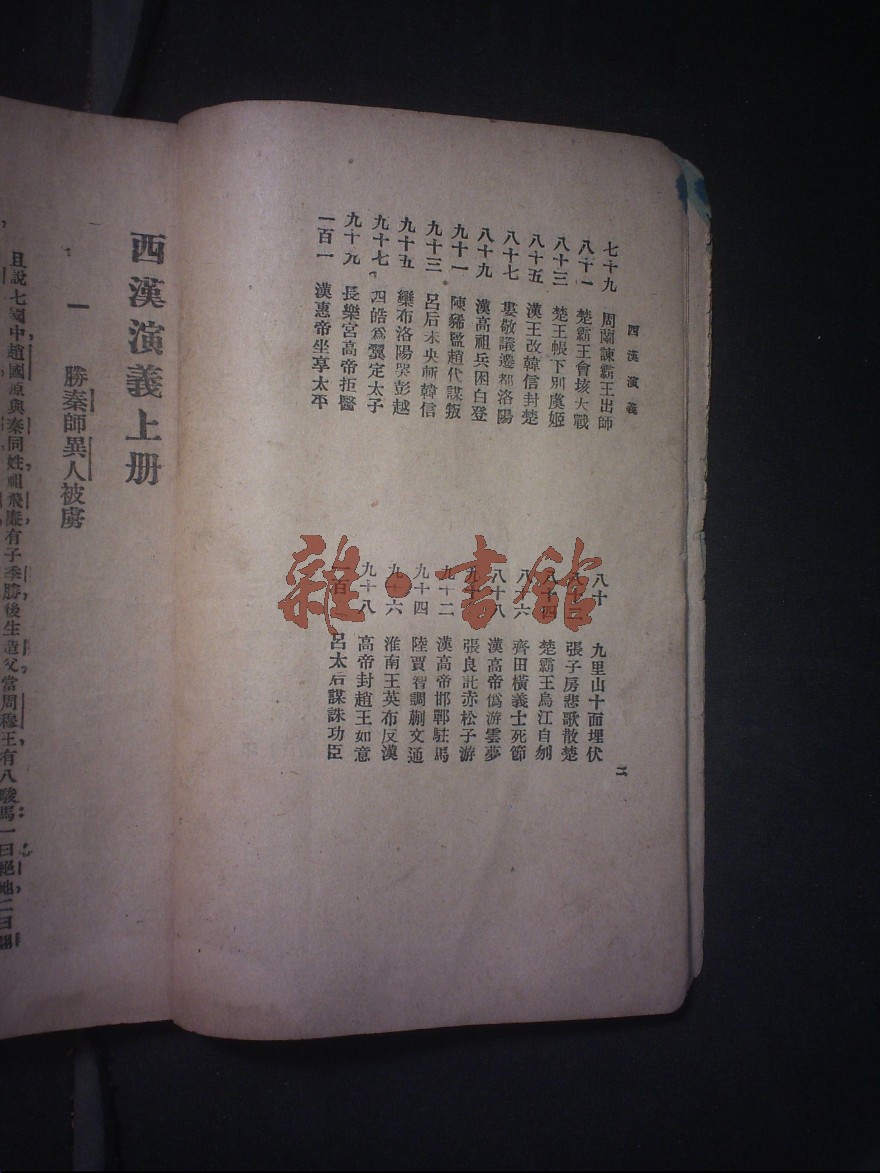 西漢演義
七十九 周蘭諫霸王出師
八十 九里山十面埋伏
八十一 楚霸王會垓大戰
八十二 張子房悲歌散楚
八十三 楚王帳下別虞姬
八十四 楚霸王烏江自刎
八十五 漢王改韓信封楚
八十六 齊田橫義士死節
八十七 婁敬議遷都洛陽
八十八 漢高帝僞游雲夢
八十九 漢高祖兵困白登
九十 張良託赤松子游
九十一 陳豨監趙代謀叛
九十二 漢高帝邯鄲駐馬
九十三 呂后未央斬韓信
九十四 陸賈智調蒯文通
九十五 欒布洛陽哭彭越
九十六 淮南王英布反漢
九十七 四皓爲翼定太子
九十八 高帝封趙王如意
九十九 長樂宮高帝拒醫
一百 呂太后謀誅功臣
一百一 漢惠帝坐享太平
二
西漢演義上册
一 勝秦師異人被虜
且說七國中，趙國原與秦同姓，祖飛廉有子季勝，後生造父，當周穆王有八駿馬：一曰絕地，二曰翻
雜·書館